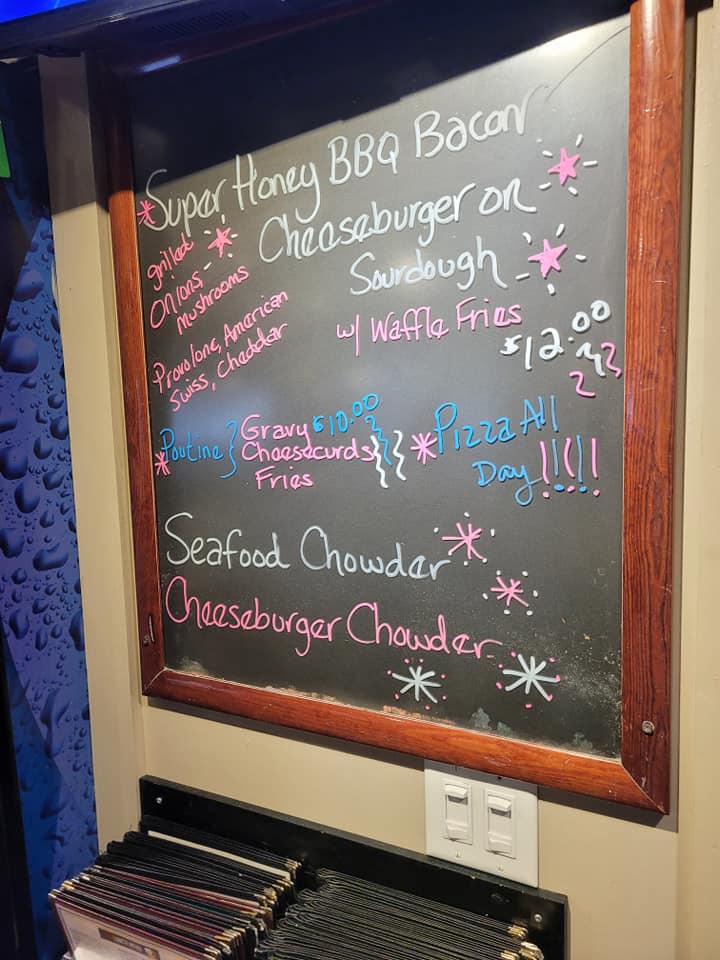 Super Honey BBQ Bacon
Cheeseburger on
Sourdough
grilled
onions,
mushrooms
Provolone, American
Swiss, Cheddar
w/ Waffle Fries
$12.00
Poutine } Gravy $10.00
Cheesecurds
Fries
Pizza All
Day !!!!!
Seafood Chowder
Cheeseburger Chowder